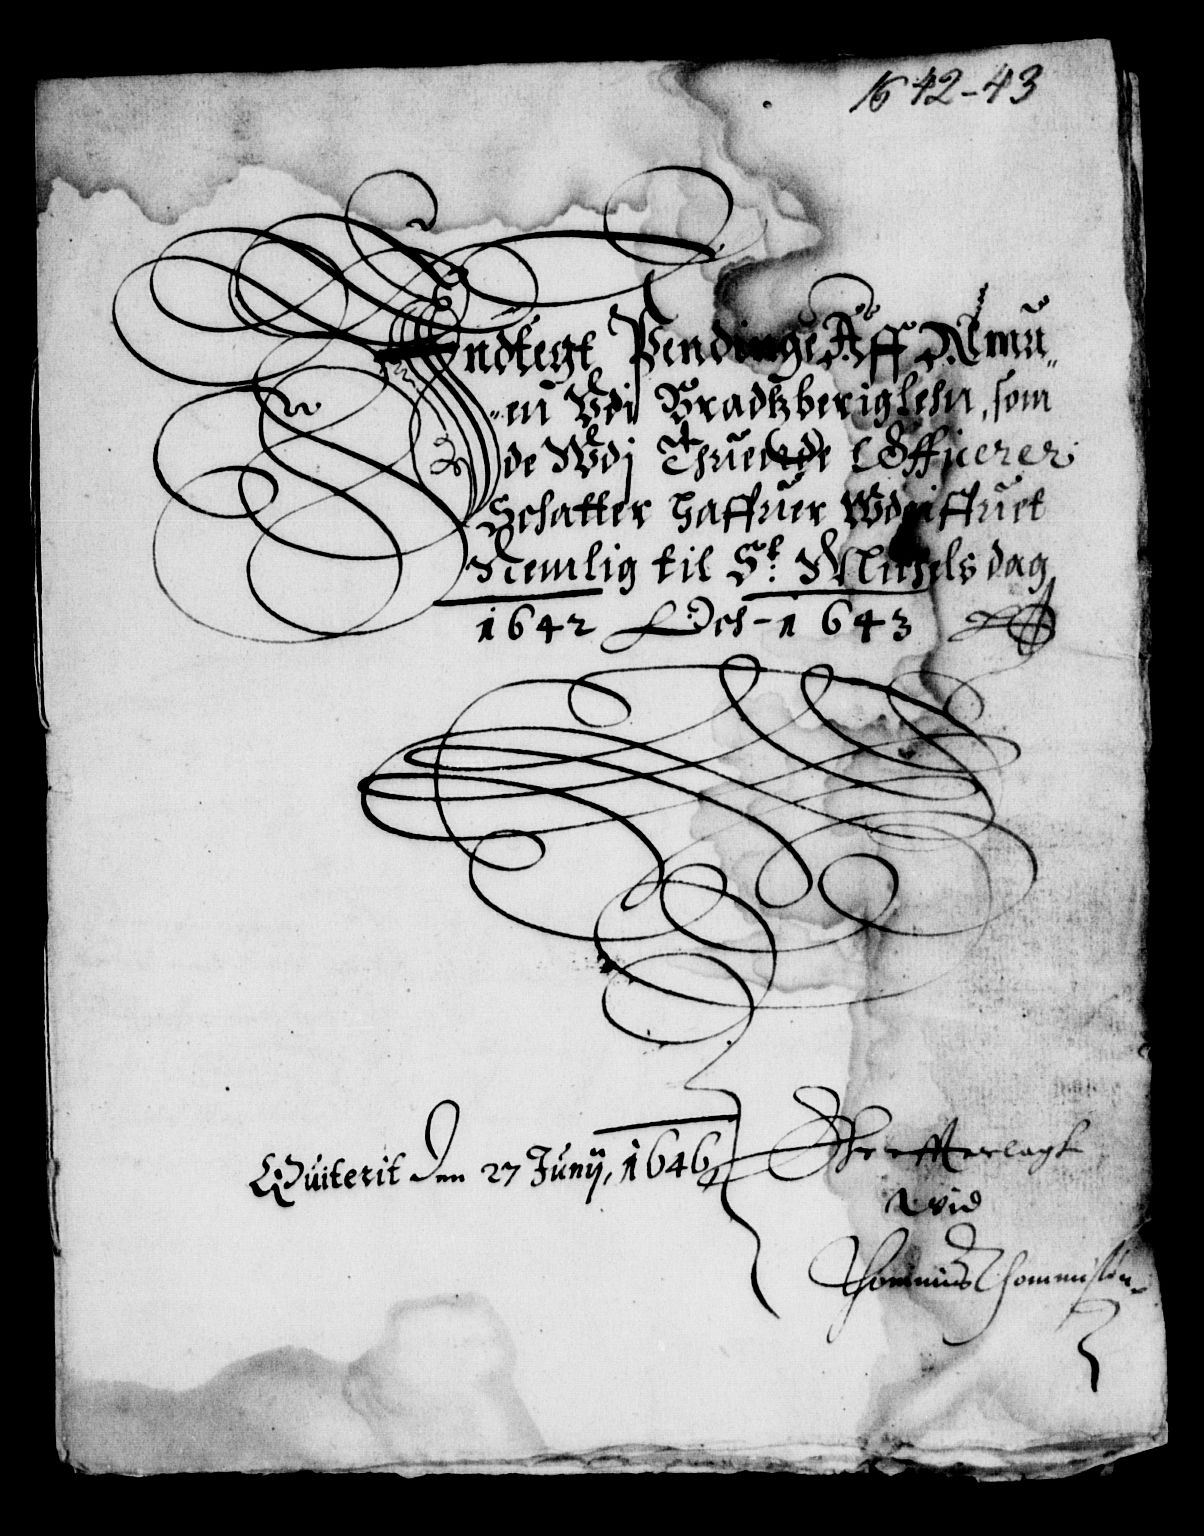 1642-43
Indtegt Pendinge Aff Almu„
„en Vdj Bradtzberiglehn, som
de Wdj Thuende Officerer
Schatter haffuer Wdgiffuet
Nemlig til St: Michels dag
1642 Och - 1643
Quiterit den 27 Junij, 1646
Offuerlagt
wid
Thommis Thommissøn